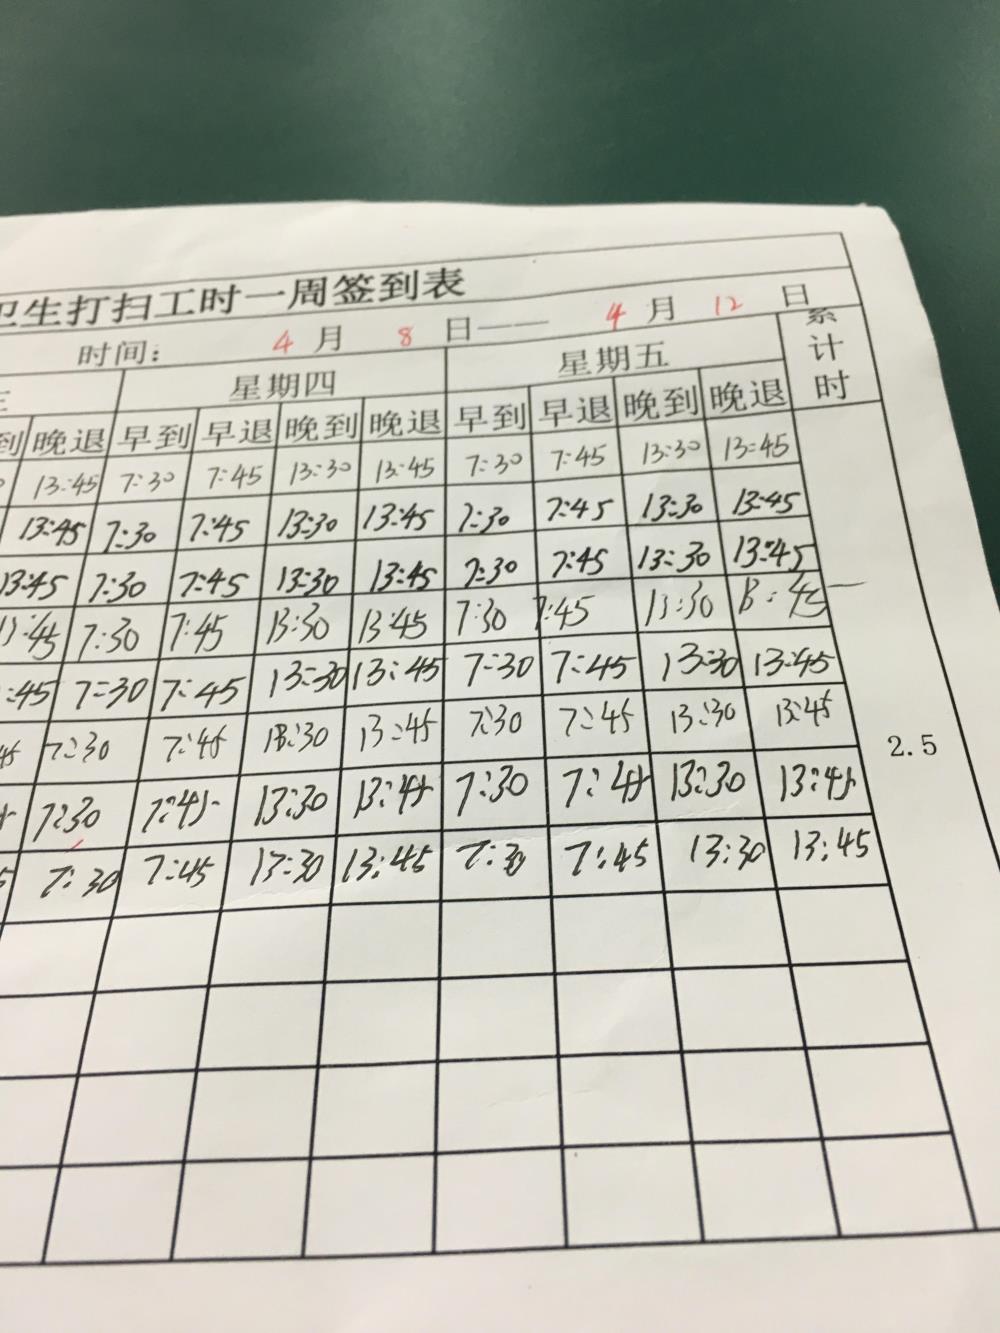 卫生打扫工时一周签到表
时间: 4 月 8 日—— 4 月 12 日
星期四 星期五 累计时
到 晚退 早到 早退 晚到 晚退 早到 早退 晚到 晚退
13:45 7:30 7:45 13:30 13:45 7:30 7:45 13:30 13:45
13:45 7:30 7:45 13:30 13:45 7:30 7:45 13:30 13:45
13:45 7:30 7:45 13:30 13:45 7:30 7:45 13:30 13:45
13:45 7:30 7:45 13:30 13:45 7:30 7:45 13:30 13:45
:45 7:30 7:45 13:30 13:45 7:30 7:45 13:30 13:45
45 7:30 7:45 13:30 13:45 7:30 7:45 13:30 13:45
7:30 7:45 13:30 13:45 7:30 7:45 13:30 13:45
5 7:30 7:45 13:30 13:45 7:30 7:45 13:30 13:45
2.5